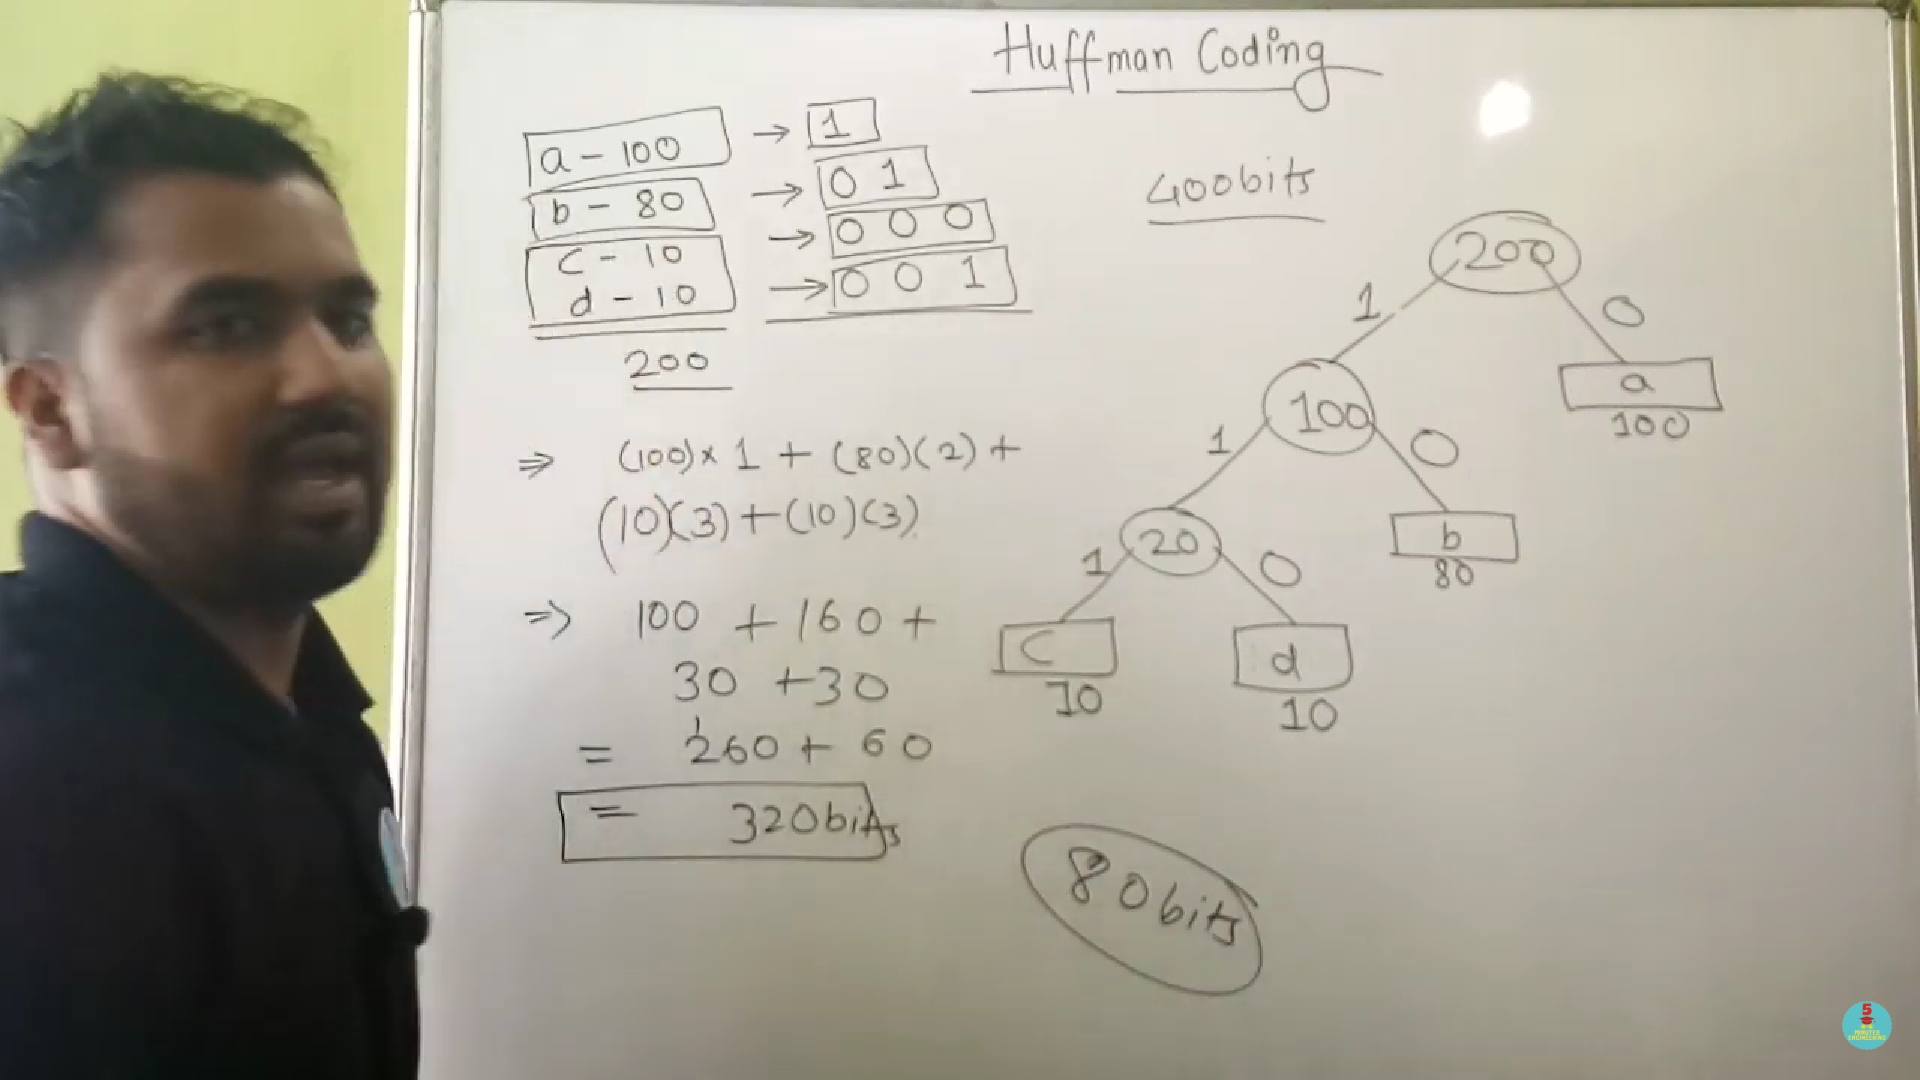 Huffman Coding
a - 100 → 1
b - 80 → 0 1
c - 10 → 0 0 0
d - 10 → 0 0 1
200
⇒ (100) × 1 + (80)(2) +
(10)(3) + (10)(3)
⇒ 100 + 160 +
30 + 30
= 260 + 60
= 320 bits
400 bits
200
1 0
a
100
100
1 0
b
80
20
1 0
c d
10 10
80 bits
5
MINUTES
ENGINEERING